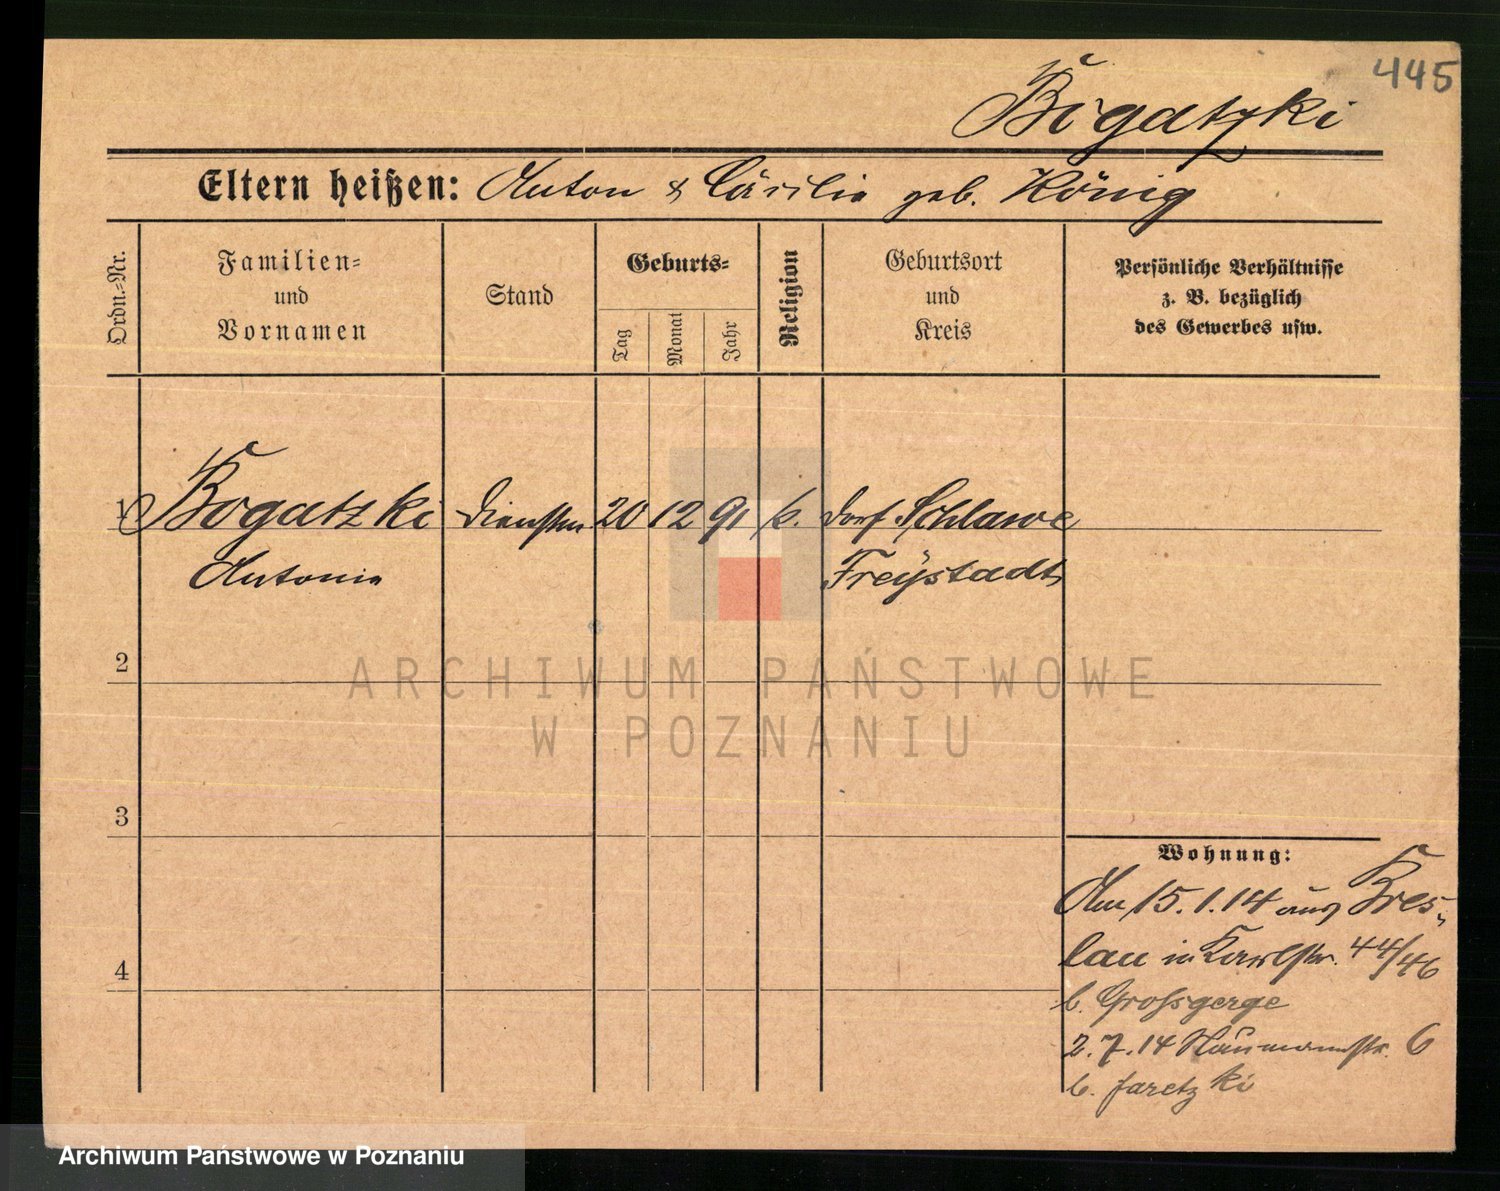 445
Bogatzki
Eltern heißen: Anton & Cäcilie geb. König
Ordn.=Nr.
Familien=
und
Vornamen
Stand
Geburts=
Tag
Monat
Jahr
Religion
Geburtsort
und
Kreis
Persönliche Verhältnisse
z. B. bezüglich
des Gewerbes usw.
1 Bogatzki 20 12 91 k. Dorf Schlawe
Antonie Freystadt
2
3
4
Wohnung:
Am 15.1.14 aus Bres-
lau in Karlstr. 44/46
b. Grossgerge
2.7.14 Naumannstr. 6
b. Jaretzki
ARCHIWUM PAŃSTWOWE
W POZNANIU
Archiwum Państwowe w Poznaniu